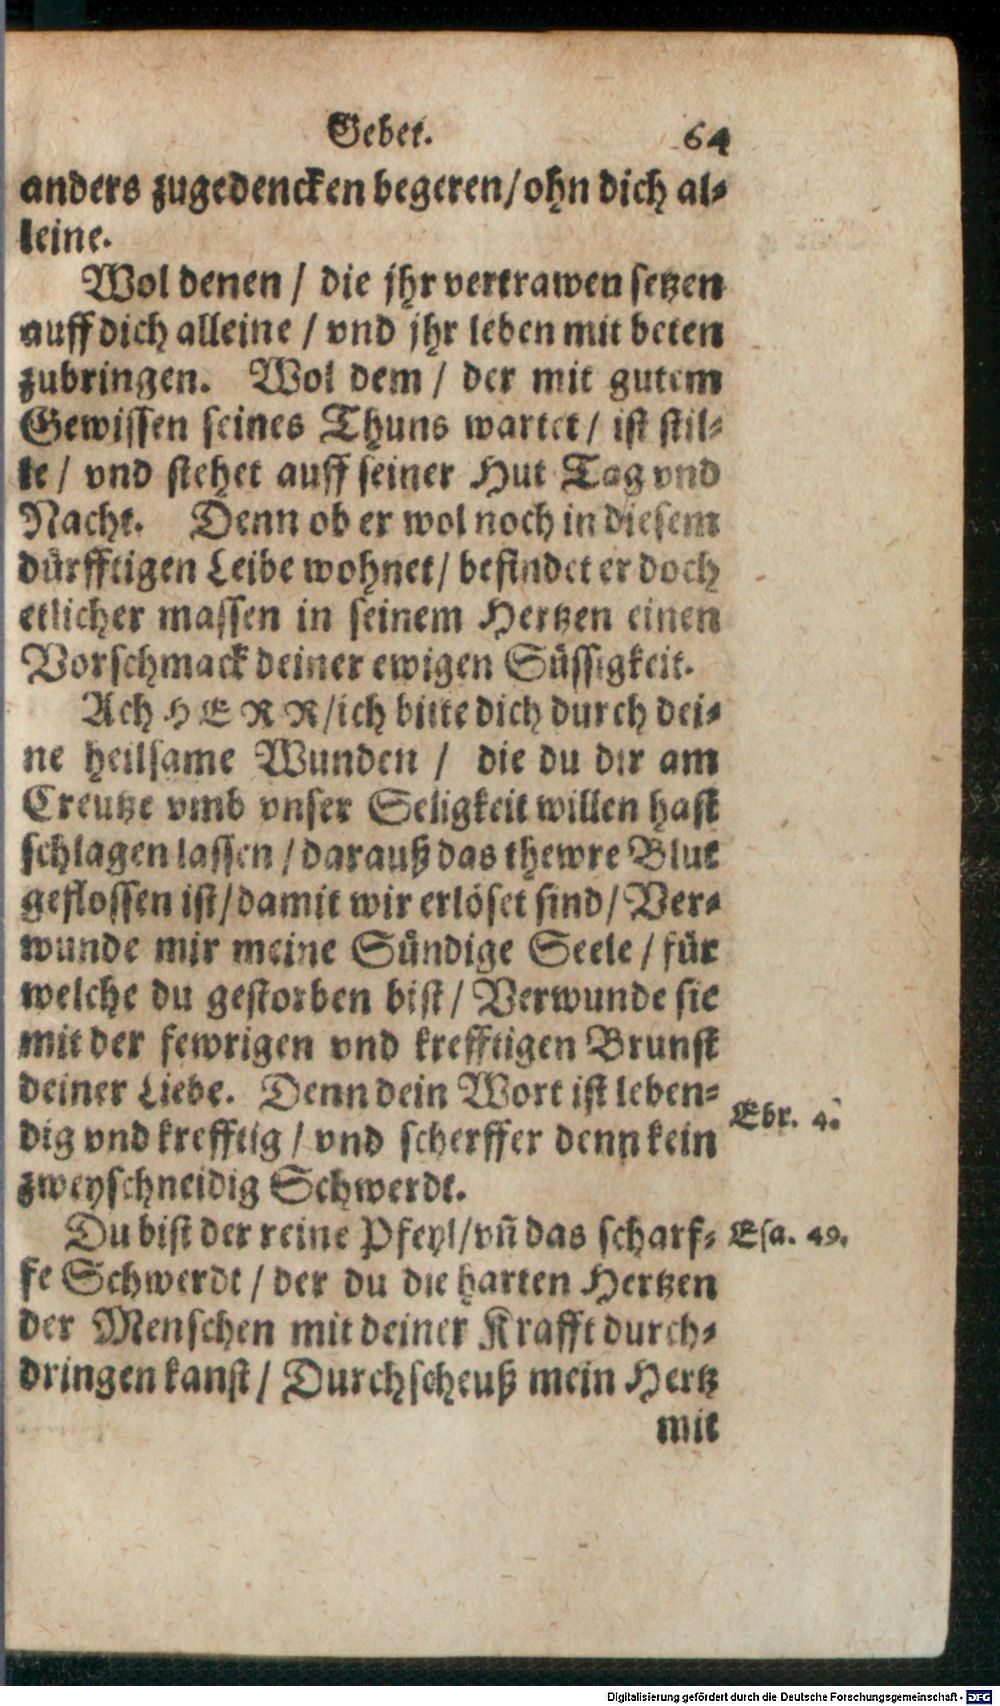 Gebet. 64
anders zugedencken begeren/ohn dich al-
leine.
Wol denen / die jhr vertrawen setzen
auff dich alleine / vnd jhr leben mit beten
zubringen. Wol dem / der mit gutem
Gewissen seines Thuns wartet / ist stil-
le / vnd stehet auff seiner Hut Tag vnd
Nacht. Denn ob er wol noch in diesem
dürfftigen Leibe wohnet / befindet er doch
etlicher massen in seinem Hertzen einen
Vorschmack deiner ewigen Süssigkeit.
Ach HERR/ich bitte dich durch dei-
ne heilsame Wunden / die du dir am
Creutze vmb vnser Seligkeit willen hast
schlagen lassen / darauß das thewre Blut
geflossen ist/damit wir erlöset sind/ Ver-
wunde mir meine Sündige Seele / für
welche du gestorben bist / Verwunde sie
mit der fewrigen vnd krefftigen Brunst
deiner Liebe. Denn dein Wort ist leben-
Ebr. 4.
dig vnd krefftig / vnd scherffer denn kein
zweyschneidig Schwerdt.
Du bist der reine Pfeyl/vñ das scharf-
Esa. 49.
fe Schwerdt / der du die harten Hertzen
der Menschen mit deiner Krafft durch-
dringen kanst / Durchscheuß mein Hertz
mit
Digitalisierung gefördert durch die Deutsche Forschungsgemeinschaft - DFG